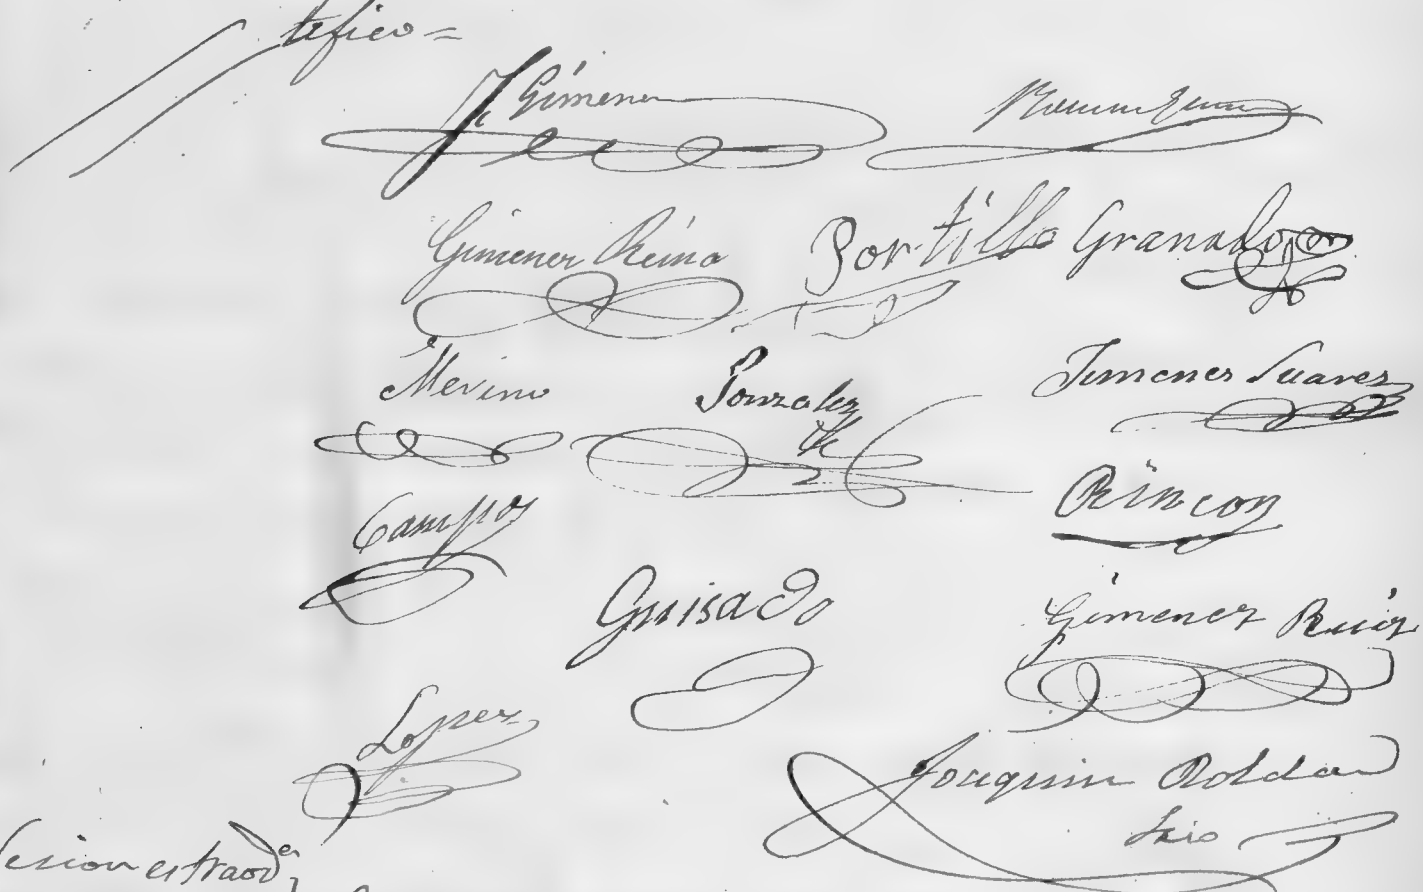 tifico=
F. Gimenez
Gimenez Reina Portillo Granados
Merino Gonzalez Jimenez Suarez
Campos Rincon
Guisado Gimenez Ruiz
Lopez
Joaquin Roldan
Srio
Sesion estraord.